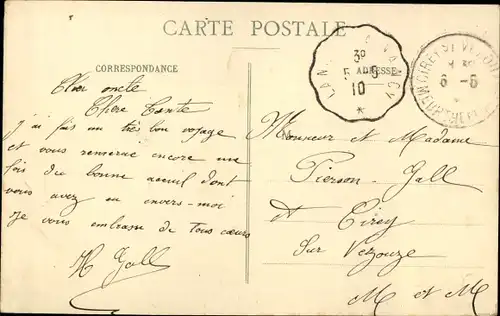 CARTE POSTALE
CORRESPONDANCE
ADRESSE
Cher oncle
Chère Tante
J'ai fais un très bon voyage
et vous remercie encore une
fois du bonne acceuil dont
vous avez eu envers-moi
Je vous embrasse de tous cœurs
H Gall
Monsieur et Madame
Pierson-Gall
Cirey
Sur Vezouze
M et M
3º
5-5
10
CIREY-S-VEZOUZE
6-5